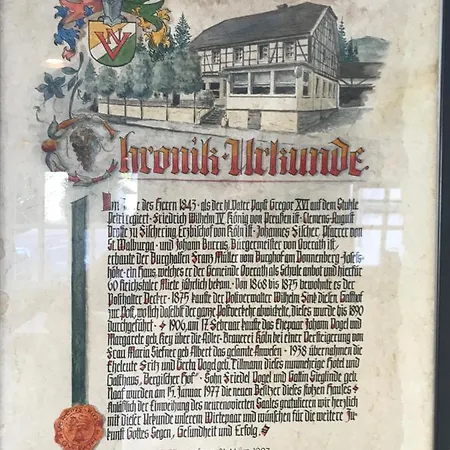 Chronik-Urkunde
Im Jahre des Herrn 1843 · als der hl. Vater Papst Gregor XVI auf dem Stuhle
Petri regiert · Friedrich Wilhelm IV König von Preußen ist · Clemens-August
Droste zu Vischering Erzbischof von Köln ist · Johannes Fischer Pfarrer von
St. Walburga · und Johann Burcus, Bürgermeister von Overath ist,
erbaute der Burghalfen Franz Müller vom Burghof am Donnenberg-Josefs-
höhe · ein Haus, welches er der Gemeinde Overath als Schule anbot und hierfür
60 Reichstaler Miete jährlich bekam · Von 1868 bis 1875 bewohnte es der
Posthalter Becker · 1875 kaufte der Postverwalter Wilhelm Sink diesen Gasthof
zur Post, wo sich daselbst der ganze Postverkehr abwickelte, dieses wurde bis 1890
durchgeführt · 1906, am 17. Februar kaufte das Ehepaar Johann Vogel und
Margarete geb. Kerg über die Adler-Brauerei Köln bei einer Versteigerung von
Frau Maria Siefner geb. Albert das gesamte Anwesen · 1938 übernahmen die
Eheleute Fritz und Berta Vogel geb. Tillmann dieses nunmehrige Hotel und
Gasthaus „Bergischer Hof“ · Sohn Friedel Vogel und Gattin Sieglinde geb.
Naaf wurden am 15. Januar 1977 die neuen Besitzer dieses stolzen Hauses
Anläßlich der Einweihung des neurenovierten Saales gratulieren wir herzlich
mit dieser Urkunde unserem Wirtepaar und wünschen für die weitere Zu-
kunft Gottes Segen, Gesundheit und Erfolg